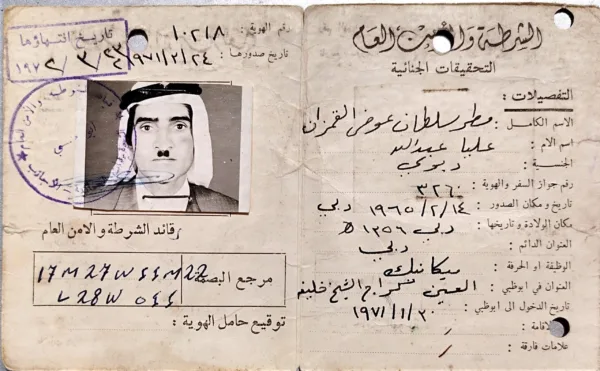 الشرطة والأمن العام
التحقيقات الجنائية
التفصيلات :
الاسم الكامل : مطر سلطان عوض القمزان
اسم الام : عليا عبدالله
الجنسية : دبوي
رقم جواز السفر والهوية : ٣٢٦٠
تاريخ ومكان الصدور : ١٩٦٥/٢/١٤ دبي
مكان الولادة وتاريخها : دبي ١٣٥٦ هـ
العنوان الدائم : دبي
الوظيفة او الحرفة : ميكانيك
العنوان في ابوظبي : العين كراج الشيخ خليفه
تاريخ الدخول الى ابوظبي : ١٩٧١/١/٣٠
الاقامة : /
علامات فارقة : /
رقم الهوية : ١٠٢١٨
تاريخ صدورها : ١٩٧١/٢/٢٤
تاريخ انتهاؤها
قائد الشرطة والامن العام
مرجع البصمة
17 M 27 W 44 M 22
L 28 W 044
توقيع حامل الهوية :